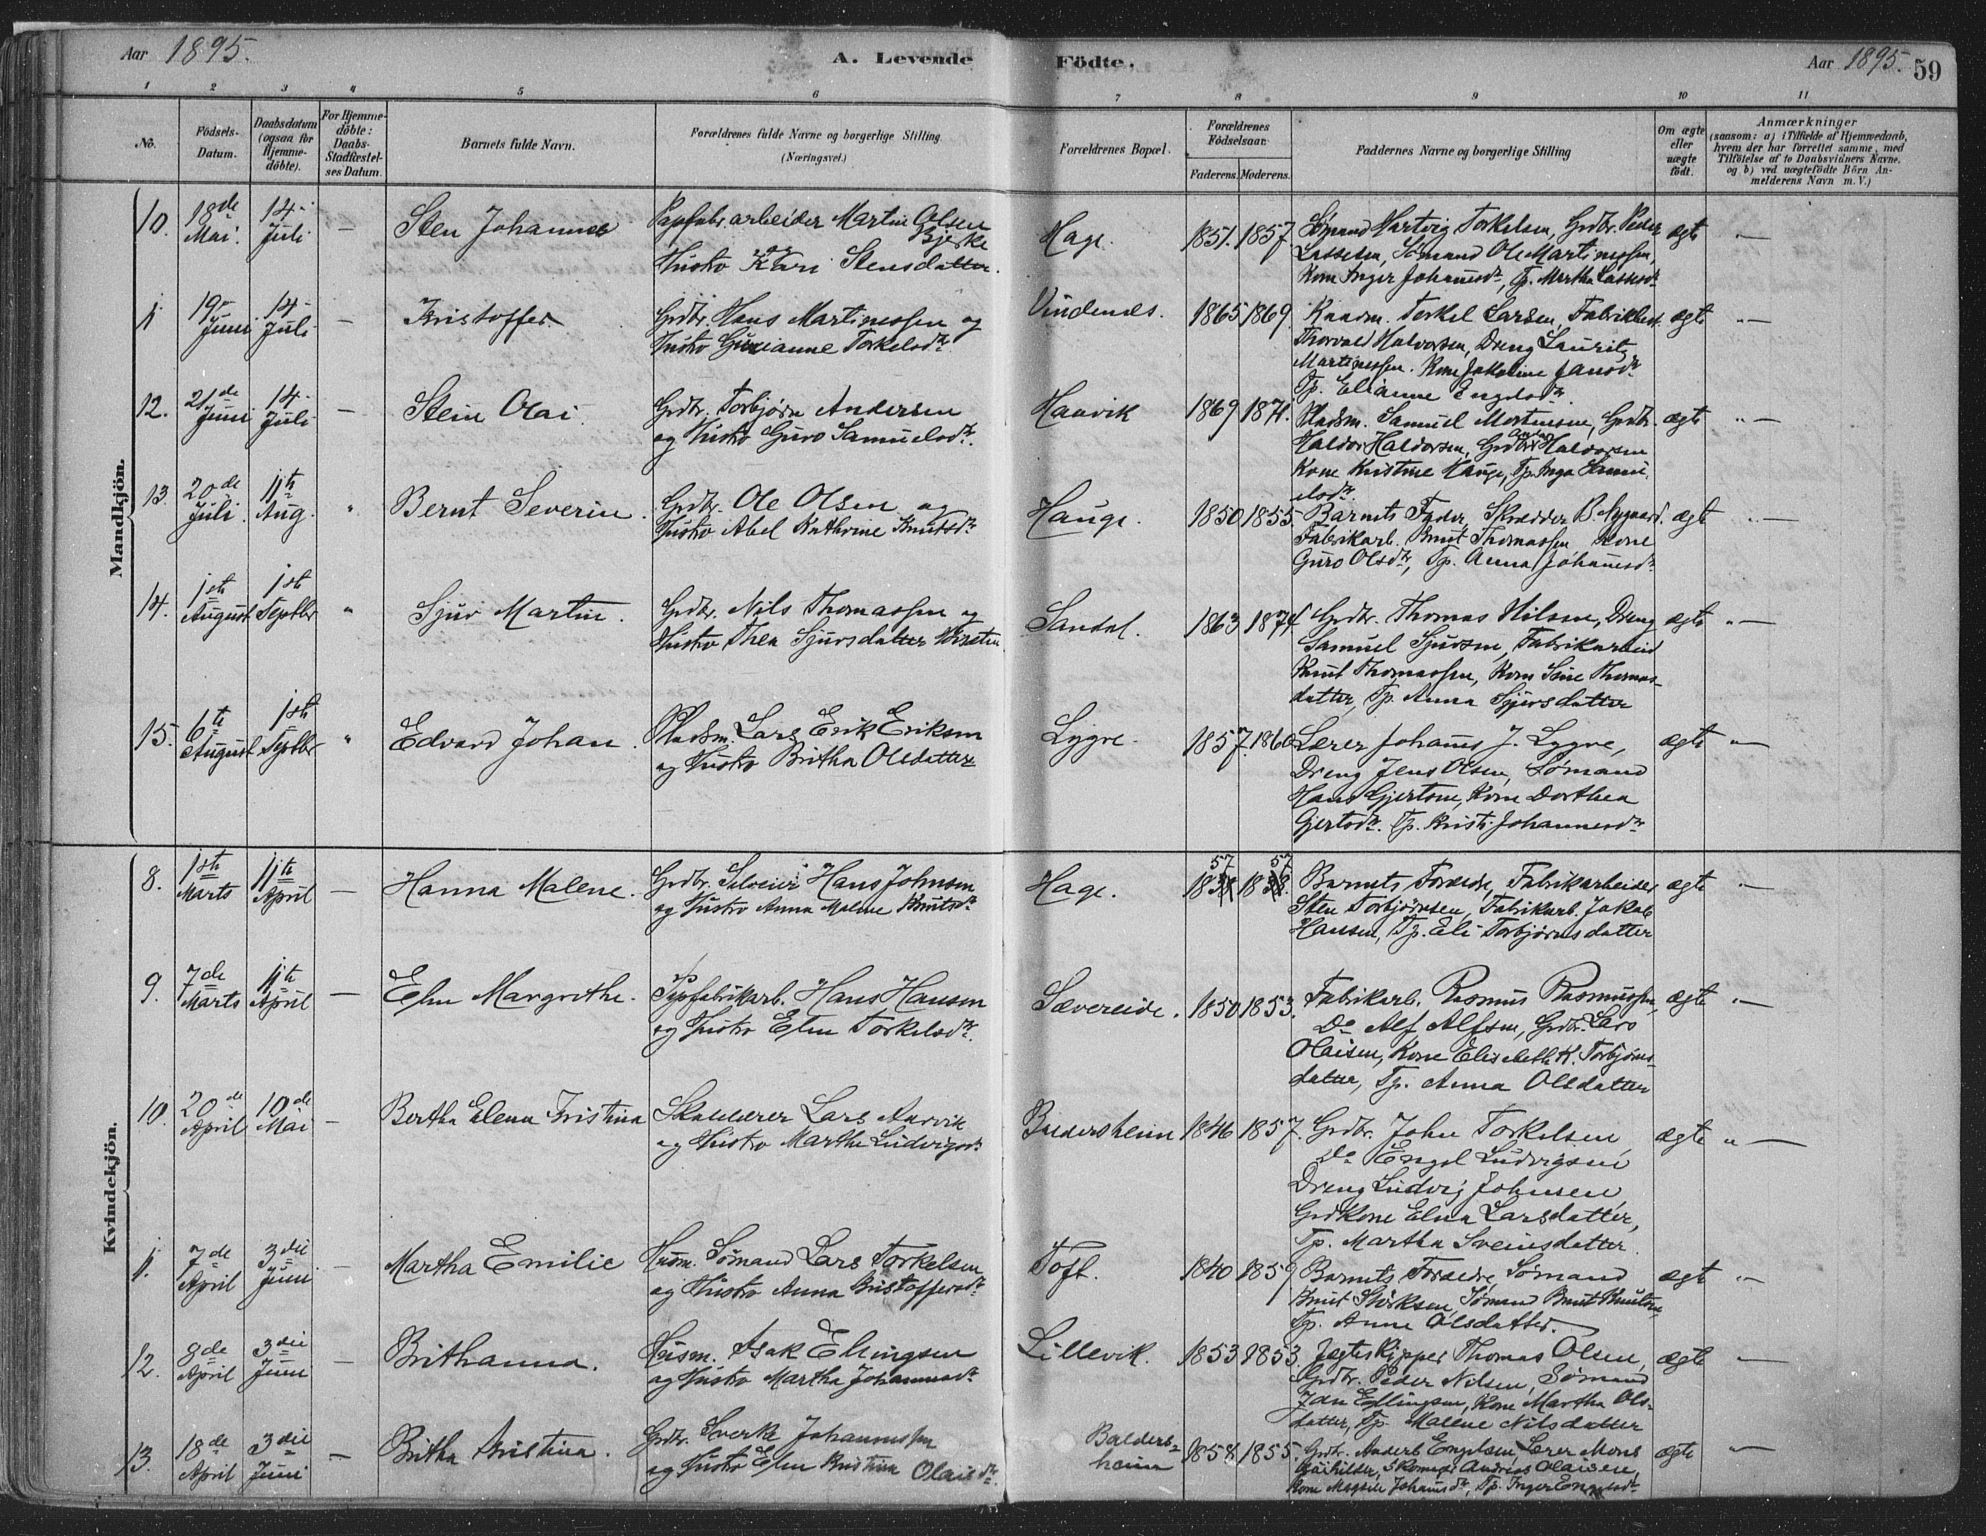 Aar 1895.
A. Levende Födte.
Aar 1895. 59
1 2 3 4 5 6 7 8 9 10 11
No.
Födsels-
Datum.
Daabsdatum
(ogsaa for
Hjemme-
döbte).
For Hjemme-
döbte:
Daabs-
Stadfæstel-
ses Datum.
Barnets fulde Navn.
Forældrenes fulde Navne og borgerlige Stilling
(Næringsvei.)
Forældrenes Bopæl.
Forældrenes
Födselsaar.
Faderens. Moderens.
Faddernes Navne og borgerlige Stilling
Om ægte
eller
uægte
födt.
Anmærkninger
(saasom: a) i Tilfælde af Hjemmedaab,
hvem der har forrettet samme, med
Tilföielse af to Daabsvidners Navne.
og b) ved uægtefödte Börn An-
melderens Navn m. V.)
Mandkjön.
10. 18de Mai. 14- Juli — Sten Johannes
arbeider Martin Olsen
Bjerke
og
Hustro Kari Stensdatter.
Hage. 1851. 1857.
Sømand Hartvig Torkelsen, Grdbr. Peder
Lassesen, Sømand Ole Martinessen,
Kone Inger Johannesdr, Tp. Martha Lassesdr
ægte "—
11 19de Juni. 14- Juli — Kristoffer.
Grdbr. Hans Martinessen og
Hustro Torkelsdr.
Vindenes. 1865 1869.
Torkel Larsen,
Thorvald Halvorsen, Dreng Laurits
Martinessen. Kone Jakobine Jansdr.
Tp. Elianne Engelsdr.
ægte "—
12. 21de Juni 14- Juli — Stein Olai.
Grdbr. Torbjørn Andersen
og Hustro Guro Samuelsdr.
Haavik 1869 1871.
Pladsm. Samuel Mortensen, Grdbr.
Haldor Haldorsen, Grdbr. Haldorsen
Kone Kristine Hauge, Tp. Inga Samu-
elsdr.
ægte "—
13. 20de Juli. 11te Aug. " Bernt Severin.
Grdbr. Ole Olsen og
Hustro Abel Kathrine Knutsdr
Hauge. 1850 1855.
Barnets Fader, Skrædder B. Nygaard.
Fabrikarb. Knut Thomassen Kone
Guro Olsdr, Tp. Anna Johannesdr
ægte "—
14. 1ste August 1ste Septbr " Sjur Martin.
Grdbr. Nils Thomassen og
Hustro Thea Sjursdatter
Sandal. 1863 1874.
Grdbr. Thomas Nilsen, Dreng
Samuel Sjursen, Fabrikarbeid
Knut Thomassen, Kone Sine Thomas-
datter, Tp. Anna Sjursdatter
ægte "—
15. 6te August 1ste Septbr " Edvard Johan.
Pladsm. Lars Erik Eriksen
og Hustro Britha Olsdatter
Lygre. 1857. 1860
Lærer Johannes J. Lygre,
Dreng Jens Olsen, Sømand
Hans Gjertsen, Kone Dorthea
Gjertsdr. Tp. Kristi Johannesdr
ægte "—
Kvindekjön.
8. 1ste Marts 11te April — Hanna Malene.
Grdbr. Hans Johnsen
og Hustro Anna Malene Knutsdr
Hage. 57 57
Barnets Forældre, Fabrikarbeider
Sten Torbjørnsen, Fabrikarb. Jakob
Hansen, Tp. Eli Torbjørnsdatter
ægte "—
9. 7de Marts 11te April — Elen Margrethe.
Hans Hansen
og Hustro Elen Torkelsdr.
Sævereide. 1850 1853.
Fabrikarb. Rasmus Rasmussen,
Do Alf Alfsen, Grdbr. Lars
Olaisen, Kone Elisabeth K. Torbjørns-
datter, Tp. Anna Olsdatter
ægte "—
10. 20de April 10de Mai — Bertha Elena Kristina
Lars Aarvik
og Hustro Martha Ludvigsdr
Baldersheim 1846 1857.
Grdbr. John Torkelsen,
Do Engel Ludvigsen
Dreng Ludvig Johnsen,
GrdKone Elna Larsdatter,
Tp. Martha Sveinsdatter.
ægte "—
11. 7de April 3die Juni — Martha Emilie
Husm. Sømand Lars Torkelsen
og Hustro Anna Kristoffersdr
Toft. 1840 1859
Barnets Forældre, Sømand
Knut Størksen, Sømand Knut Knutsen,
Tp. Anne Olsdatter.
ægte "—
12. 8de April 3die Juni — Brithanna.
Husm. Isak Ellingsen
og Hustro Martha Johannesdr
Lillevik. 1853 1853.
Jægteskipper Thomas Olsen,
Grdbr. Peder Nilsen, Sømand
Jan Ellingsen, Kone Martha Ols-
datter, Tp. Malene Nilsdatter
ægte "—
13. 18de April 3die Juni — Britha Kristina.
Grdbr. Sverke Johannessen
og Hustro Elen Kristina Olaisdr.
Balders-
heim
1858 1855.
Grdbr. Anders Engelsen, Lærer Mons
Andreas Olaisen,
Kone Johannesdr, Tp. Inger Engelsdr
ægte "—